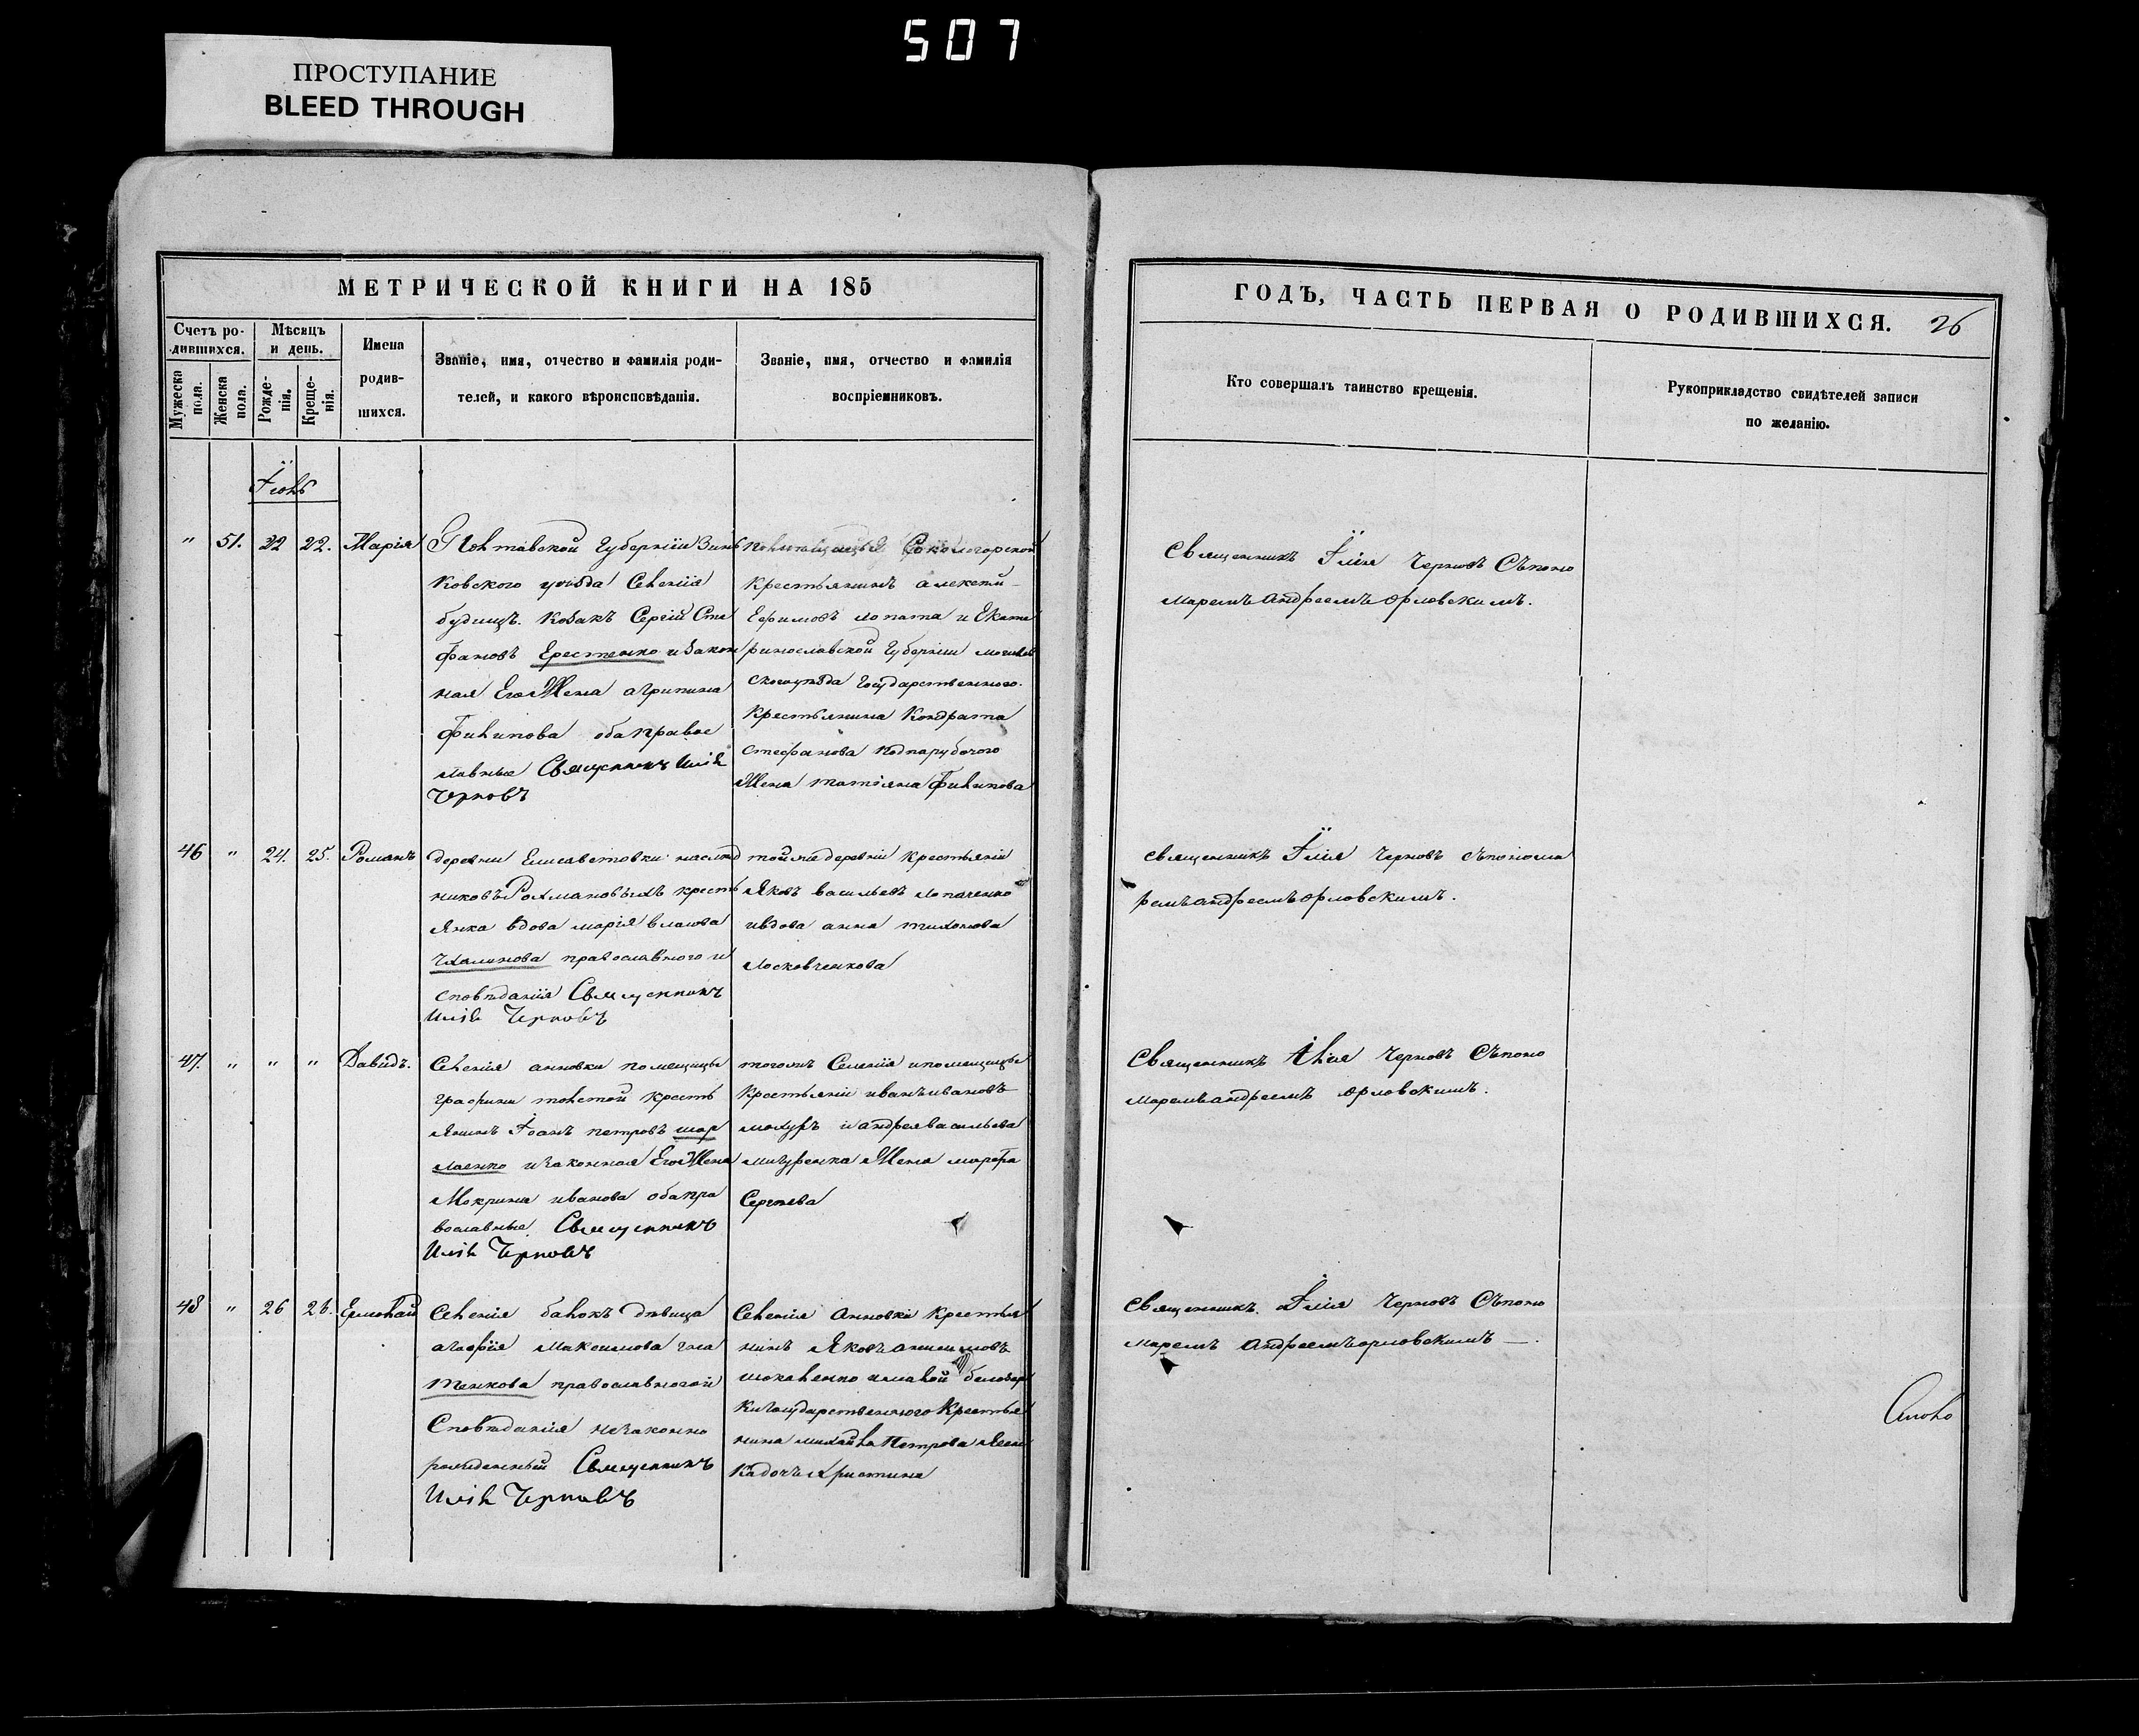 507
ПРОСТУПАНИЕ
BLEED THROUGH
МЕТРИЧЕСКОЙ КНИГИ НА 185
Счетъ ро-
дившихся.
Мужеска
пола.
Женска
пола.
Мѣсяцъ
и день.
Рожде-
нія.
Креще-
нія.
Имена
родив-
шихся.
Званіе, имя, отчество и фамилія роди-
телей, и какого вѣроисповѣданія.
Званіе, имя, отчество и фамилія
воспріемниковъ.
Іюнь
" 51. 22 22. Марія
Полтавской Губерніи Зинь
ковского уѣзда Селенія
будищъ. козакъ Сергій Сте
фановъ Ерестенко и закон
ная Его Жена агрипина
Филипова оба правос
лавные Священникъ Илія
Черновъ
Сокологорской
крестьянинъ алексѣй
Ефимовъ лопата и Екате
ринославской Губерніи
уѣзда Государственного
крестьянина Кондрата
стефанова подпарубочого
Жена татіяна Филипова
46 " 24. 25. Романъ
деревни Елисаветовки наслѣд
никовъ Рахмановыхъ кресть
янка вдова марія власова
православного и
сповѣданія Священникъ
Илія Черновъ
той же деревни крестьянинъ
Яковъ васильевъ лопаченко
и вдова анна тихонова
Московченкова
47. " " " Давидъ.
Селенія анновки помещицы
графини толстой кресть
янинъ Іоанъ петровъ шар
лаенко и законная Его Жена
Мокрина иванова оба пра
вославные. Священникъ
Илія Черновъ
тогожъ Селенія и помещицы
крестьяне иванъ ивановъ
и андрея васильева
Жена марфа
Сергѣева
48 " 26 26. Ермолай
Селенія балокъ дѣвица
агафія Максимова гла
тенкова православного и
Сповѣданія незаконно
рожденный Священникъ
Илія Черновъ
Селенія Анновки крестья
нинъ Яковъ
и малой белозер
ки Государственного Крестья
нина михайла Петрова
ка дочь христина
ГОДЪ, ЧАСТЬ ПЕРВАЯ О РОДИВШИХСЯ. 26
Кто совершалъ таинство крещенія.
Рукоприкладство свидѣтелей записи
по желанію.
Священникъ Ілія Черновъ Съ поно
маремъ андреемъ орловскимъ.
священникъ Ілія Черновъ съ понома
ремъ андреемъ орловскимъ.
Священникъ Ілія Черновъ Съ поно
маремъ андреемъ орловскимъ.
Священникъ Ілія Черновъ Съ поно
маремъ андреемъ орловскимъ —.